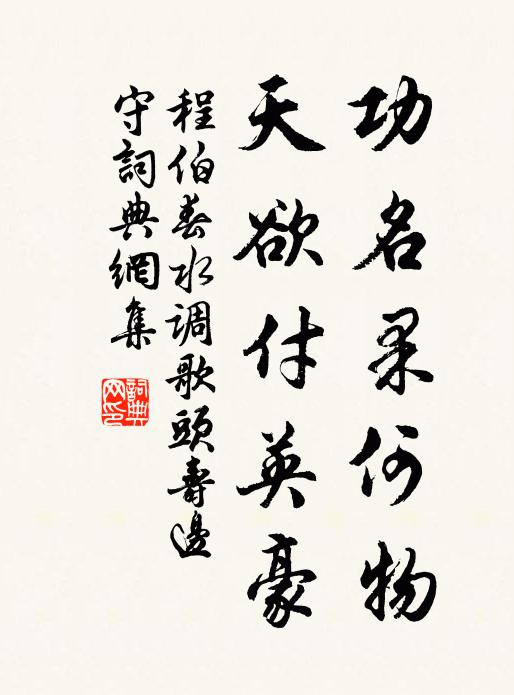 功名果何物
天欲付英豪
程伯春水调歌頭壽邊
守詞典網集
詞典
网印